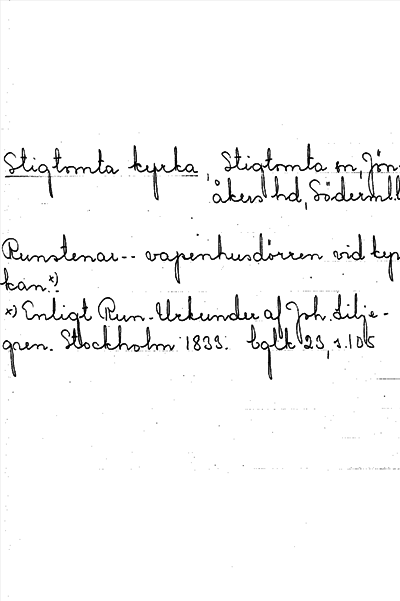 Stigtomta kyrka, Stigtomta sn, Jön-
åkers hd, Söderml
Runstenar -- vapenhusdörren vid kyr
kan.x)
x) Enligt Run-Urkunder af Joh. Lilje-
gren. Stockholm 1833. 23, s. 105